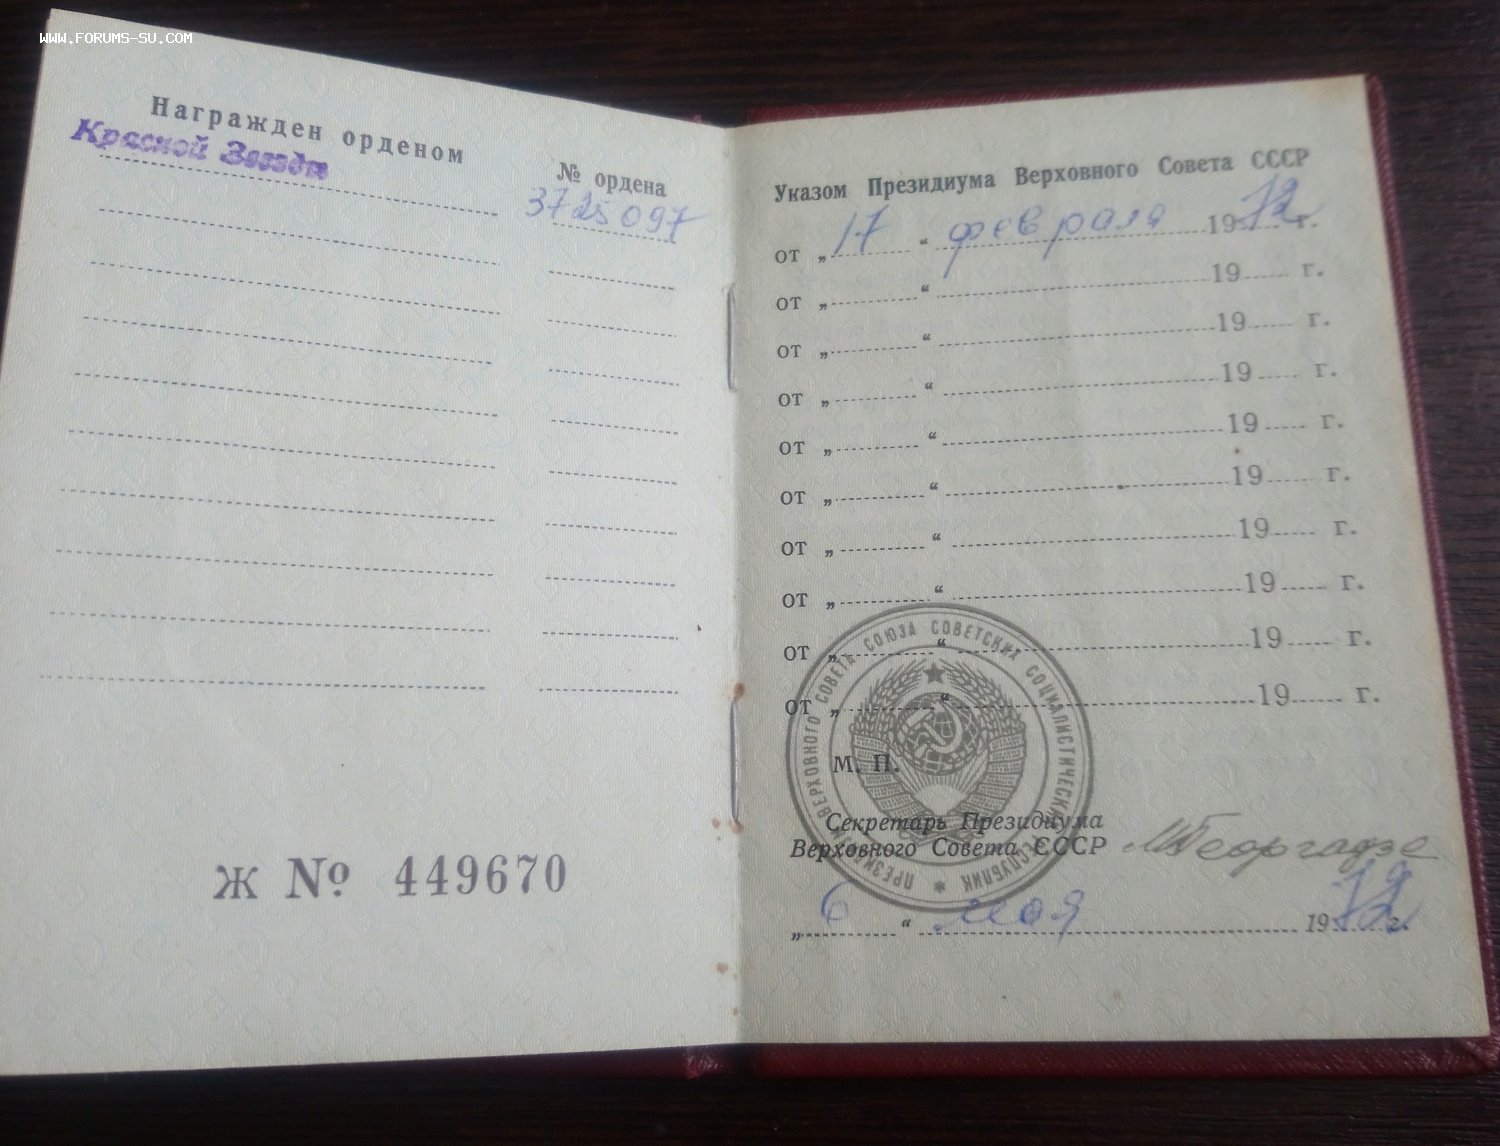 WWW.FORUMS-SU.COM
Награжден орденом
Красной Звезды
№ ордена
3725097
Ж № 449670
Указом Президиума Верховного Совета СССР
от „17“ февраля 1972 г.
от „ “ 19 г.
от „ “ 19 г.
от „ “ 19 г.
от „ “ 19 г.
от „ “ 19 г.
от „ “ 19 г.
от „ “ 19 г.
от „ “ 19 г.
от „ “ 19 г.
М. П.
ПРЕЗИДИУМ ВЕРХОВНОГО СОВЕТА СОЮЗА СОВЕТСКИХ СОЦИАЛИСТИЧЕСКИХ РЕСПУБЛИК
Секретарь Президиума
Верховного Совета СССР
МГеоргадзе
„6“ мая 1972 г.